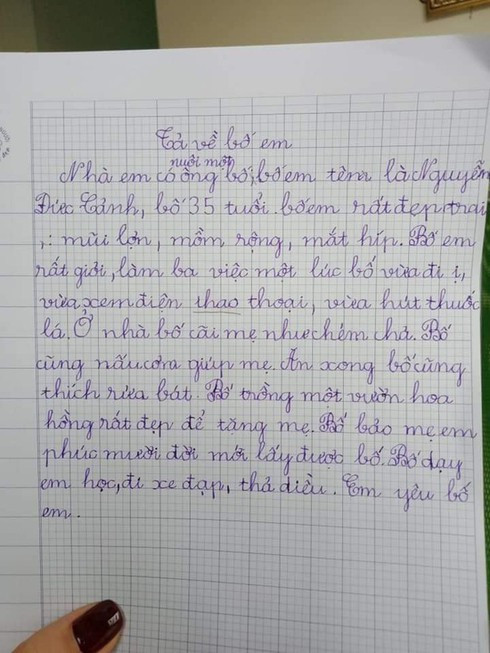 Tả về bố em
nuôi một
Nhà em có ông bố, bố em tên là Nguyễn
Đức Cảnh, bố 35 tuổi. bố em rất đẹp trai
,: mũi lợn, mồm rộng, mắt híp. Bố em
rất giỏi, làm ba việc một lúc bố vừa đi ị,
vừa xem điện thao thoại, vừa hút thuốc
lá. Ở nhà bố cãi mẹ như chém chả. Bố
cũng nấu cơm giúp mẹ. Ăn xong bố cũng
thích rửa bát. Bố trồng một vườn hoa
hồng rất đẹp để tăng mẹ. Bố bảo mẹ em
phúc mười đời mới lấy được bố. Bố dạy
em học, đi xe đạp, thả diều. Em yêu bố
em.